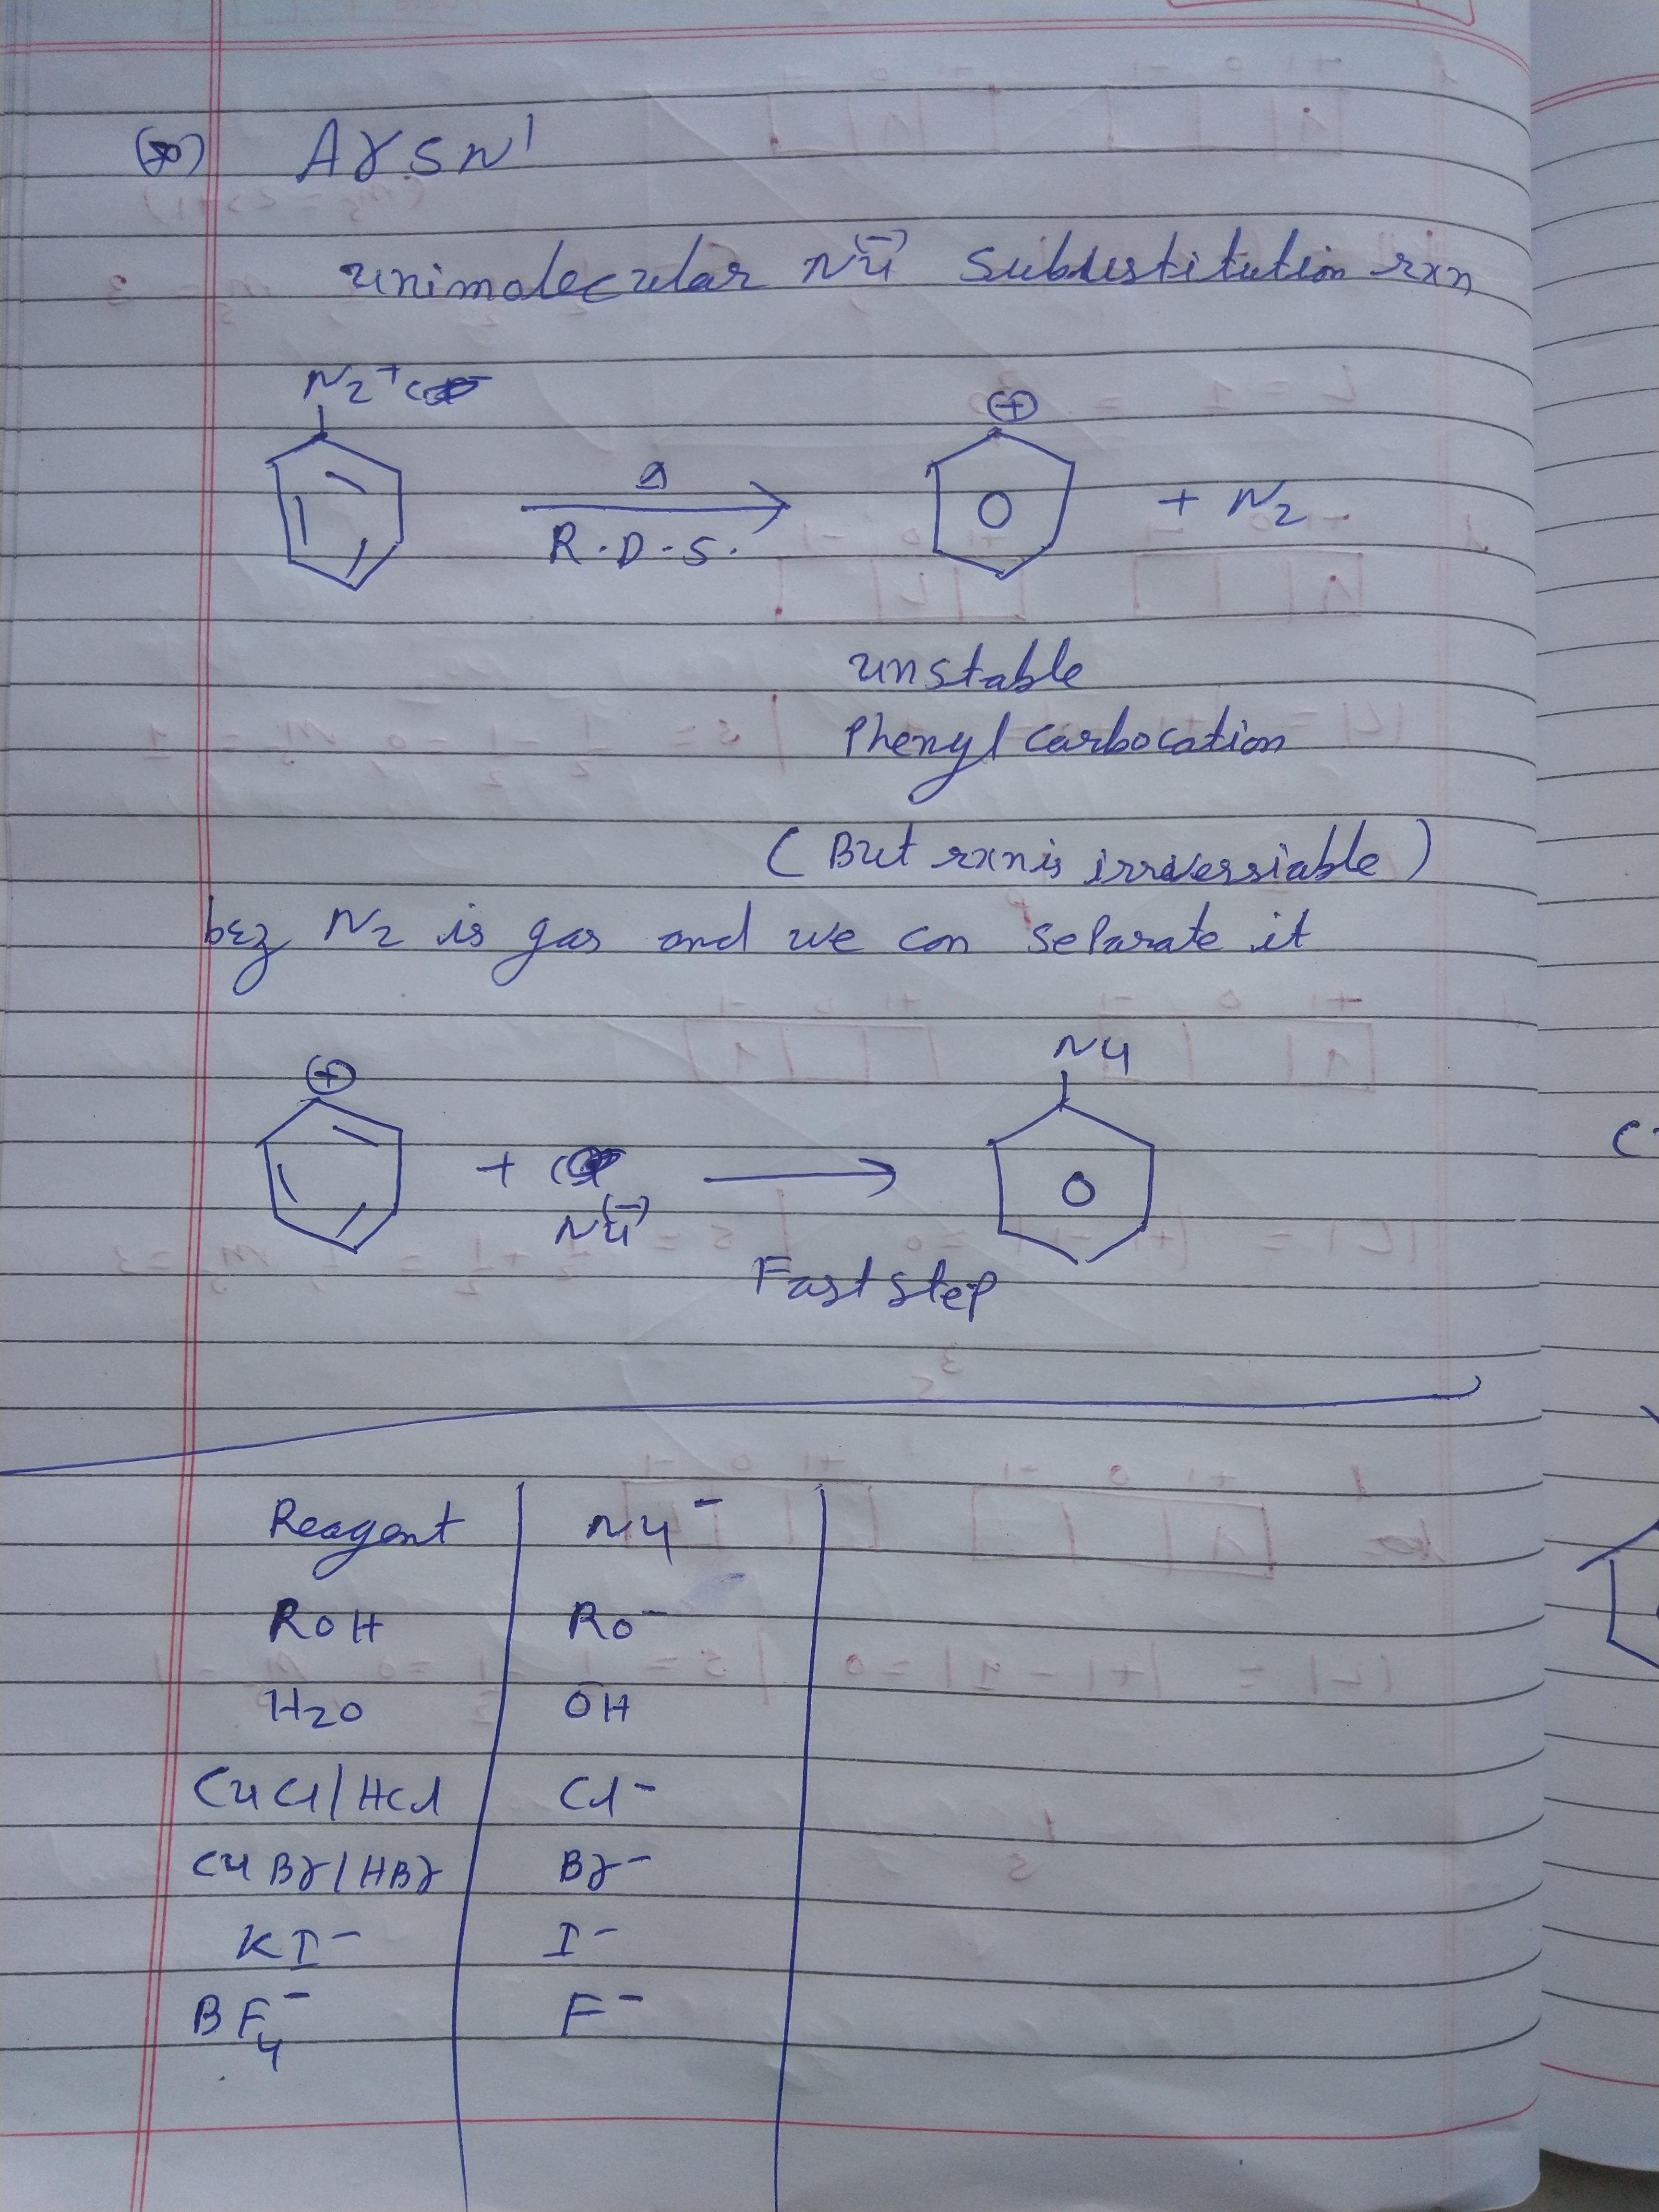 ArSN1
unimolecular Nu(-) Subustitution rxn
N2+
Δ
R.D.S.
⊕
+ N2
unstable
Phenyl carbocation
(But rxn is irrversiable)
bcz N2 is gas and we can separate it
⊕
+
Nu(-)
Nu
Fast step
Reagent Nu-
ROH RO-
H2O ŌH
CuCl/HCl Cl-
CuBr/HBr Br-
KI- I-
BF4- F-